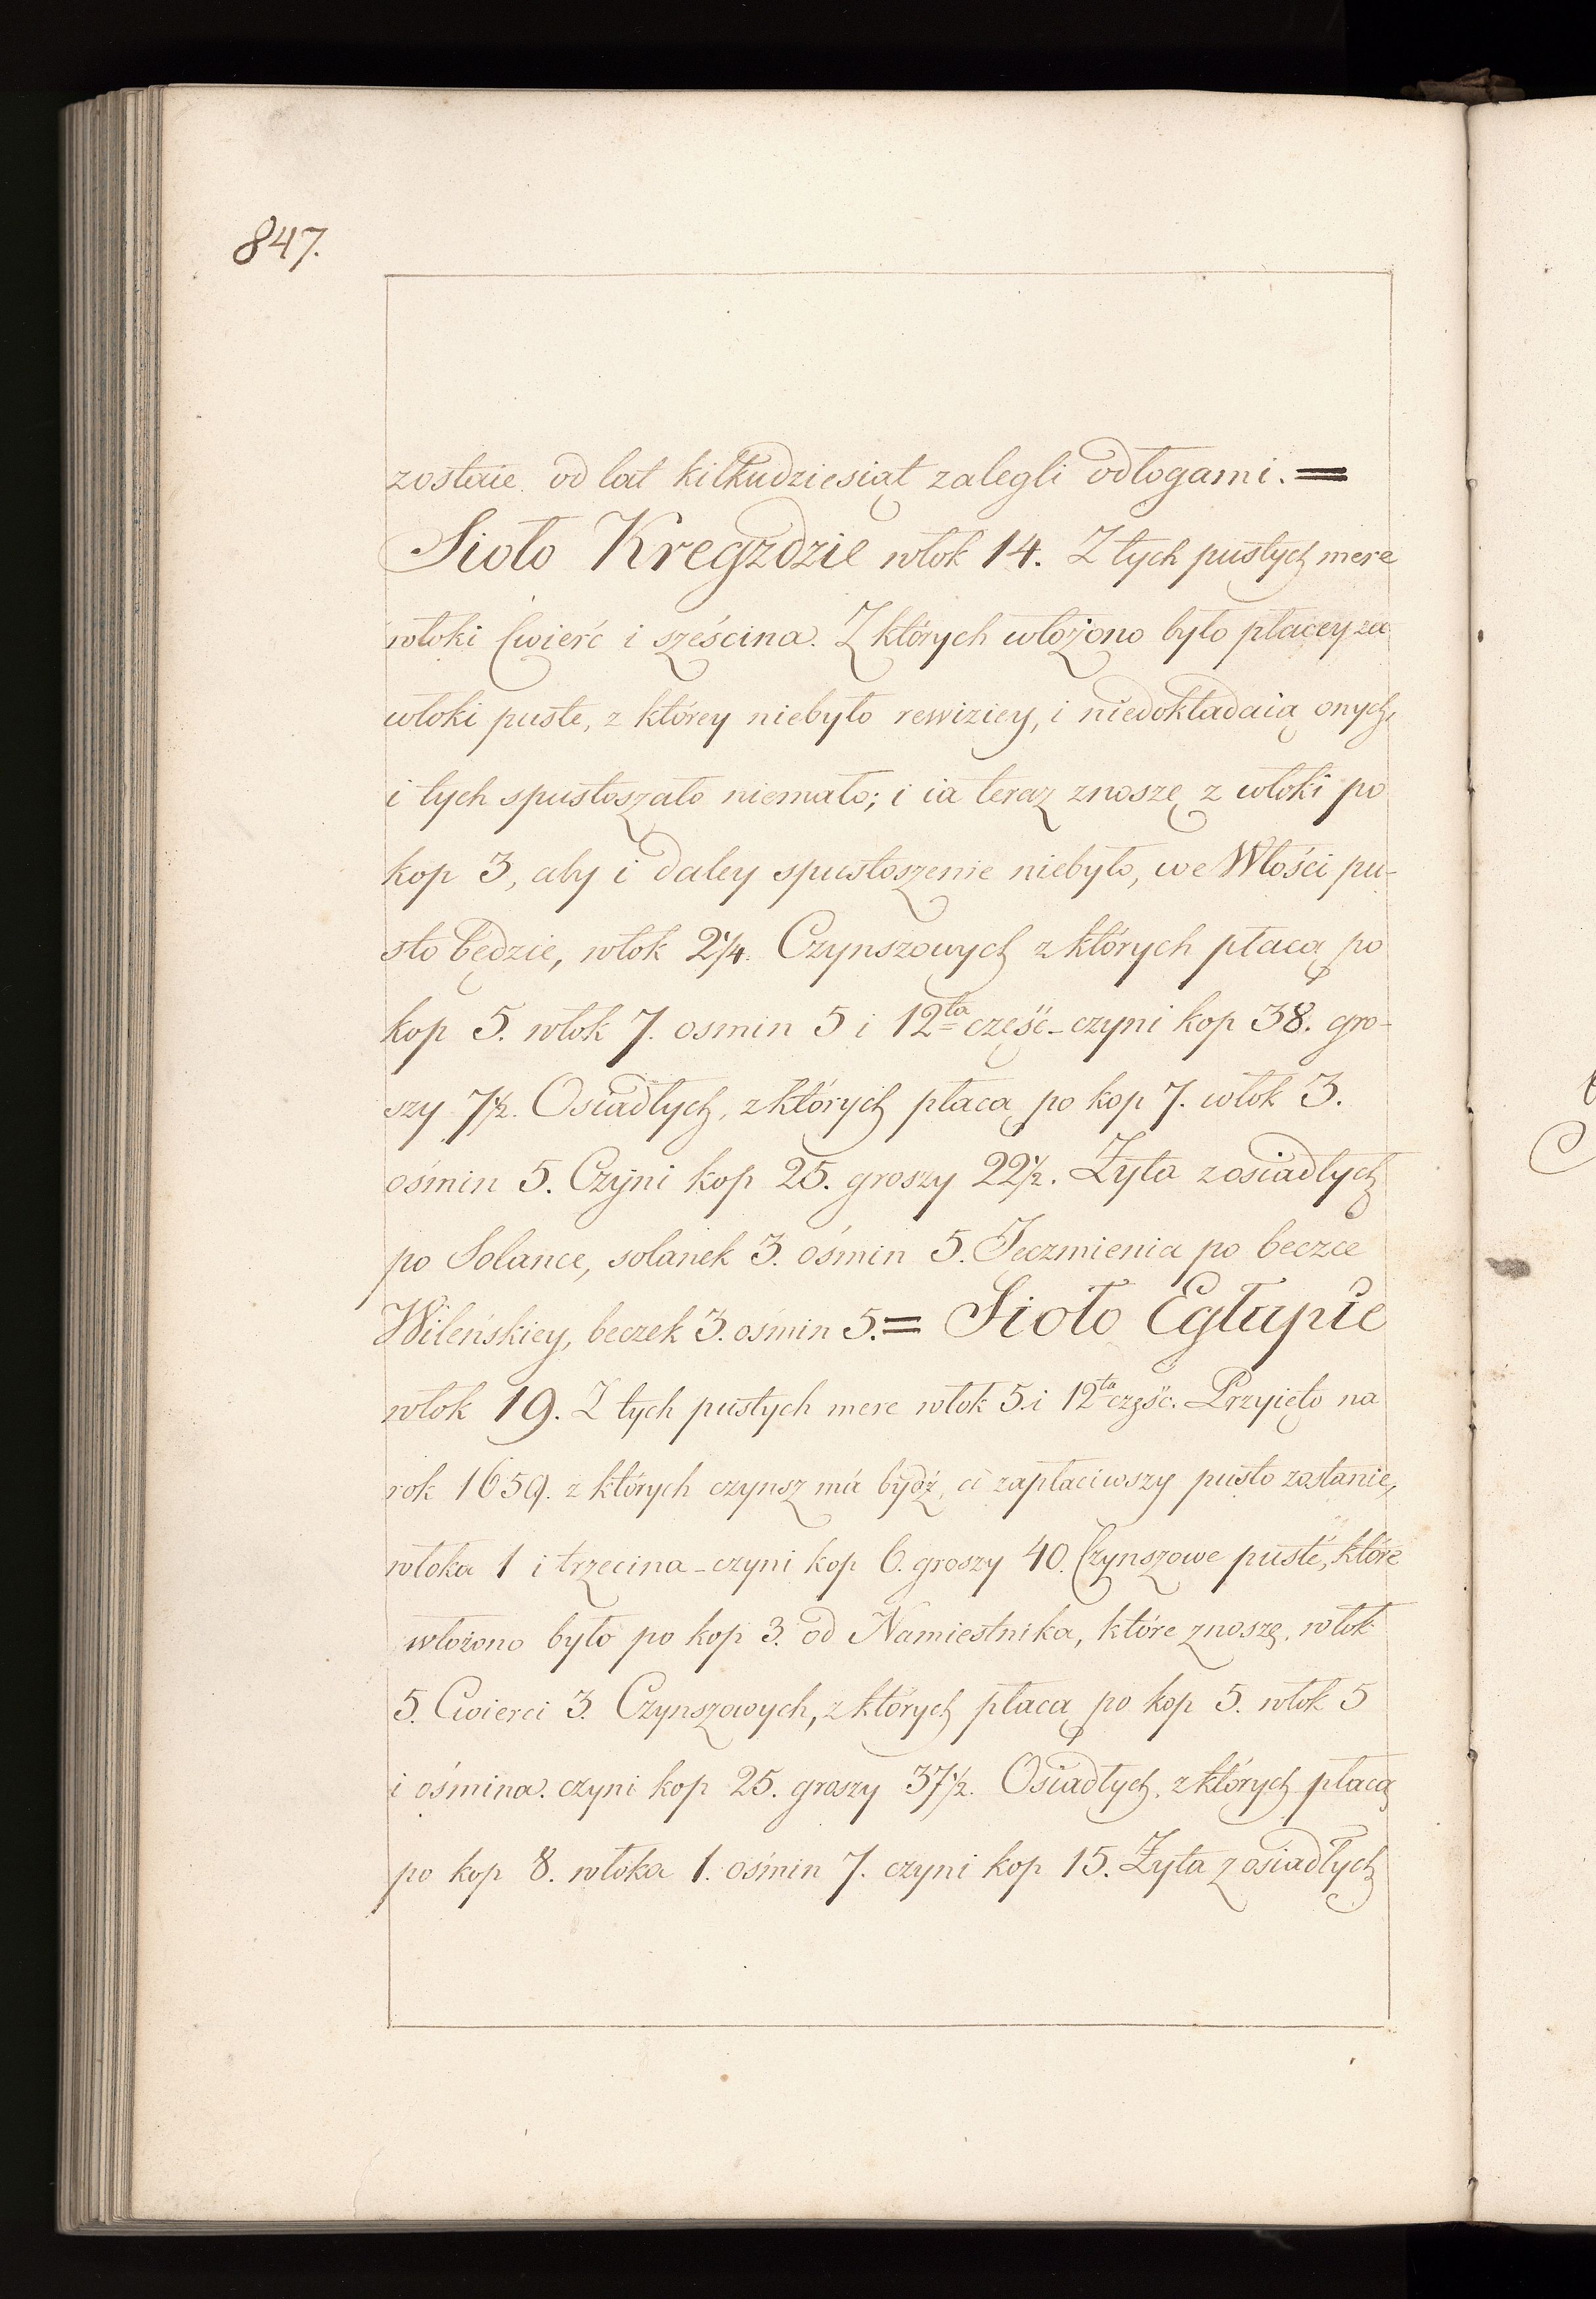 847.
zostaie od lat kilkudziesiąt zalegli odłogami. =
Sioło Kregzdzie włok 14. Z tych pustych mere
włoki Ćwierć i sześcina. Z których włożono było płacey za
włoki puste, z którey niebyło rewiziey, i niedokładaią onych,
i tych spustoszało niemało; i ia teraz znoszę z włoki po
kop 3, aby i daley spustoszenie niebyło, we Włości pu-
sto będzie, włok 2¼. Czynszowych z których płacą po
kop 5. włok 7. osmin 5 i 12ta część - czyni kop 38. gro-
szy 7½. Osiadłych, z których płacą po kop 7. włok 3.
ośmin 5. Czyni kop 25. groszy 22½. Żyta z osiadłych
po Solance, solanek 3. ośmin 5. Jeczmienia po beczce
Wileńskiey, beczek 3. ośmin 5. = Sioło Egłupie
włok 19. Z tych pustych mere włok 5. i 12ta część. Przyięto na
rok 1659. z których czynsz má bydź, ci zapłaciwszy pusto zostanie,
włoka 1 i trzecina - czyni kop 6. groszy 40. Czynszowe puste, które
włożono było po kop 3. od Namiestnika, które znoszę, włok
5. Cwierci 3. Czynszowych, z których płacą po kop 5. włok 5
i ośmina. czyni kop 25. groszy 37½. Osiadłych, z których płacą
po kop 8. włoka 1. ośmin 7. czyni kop 15. Żyta z osiadłych